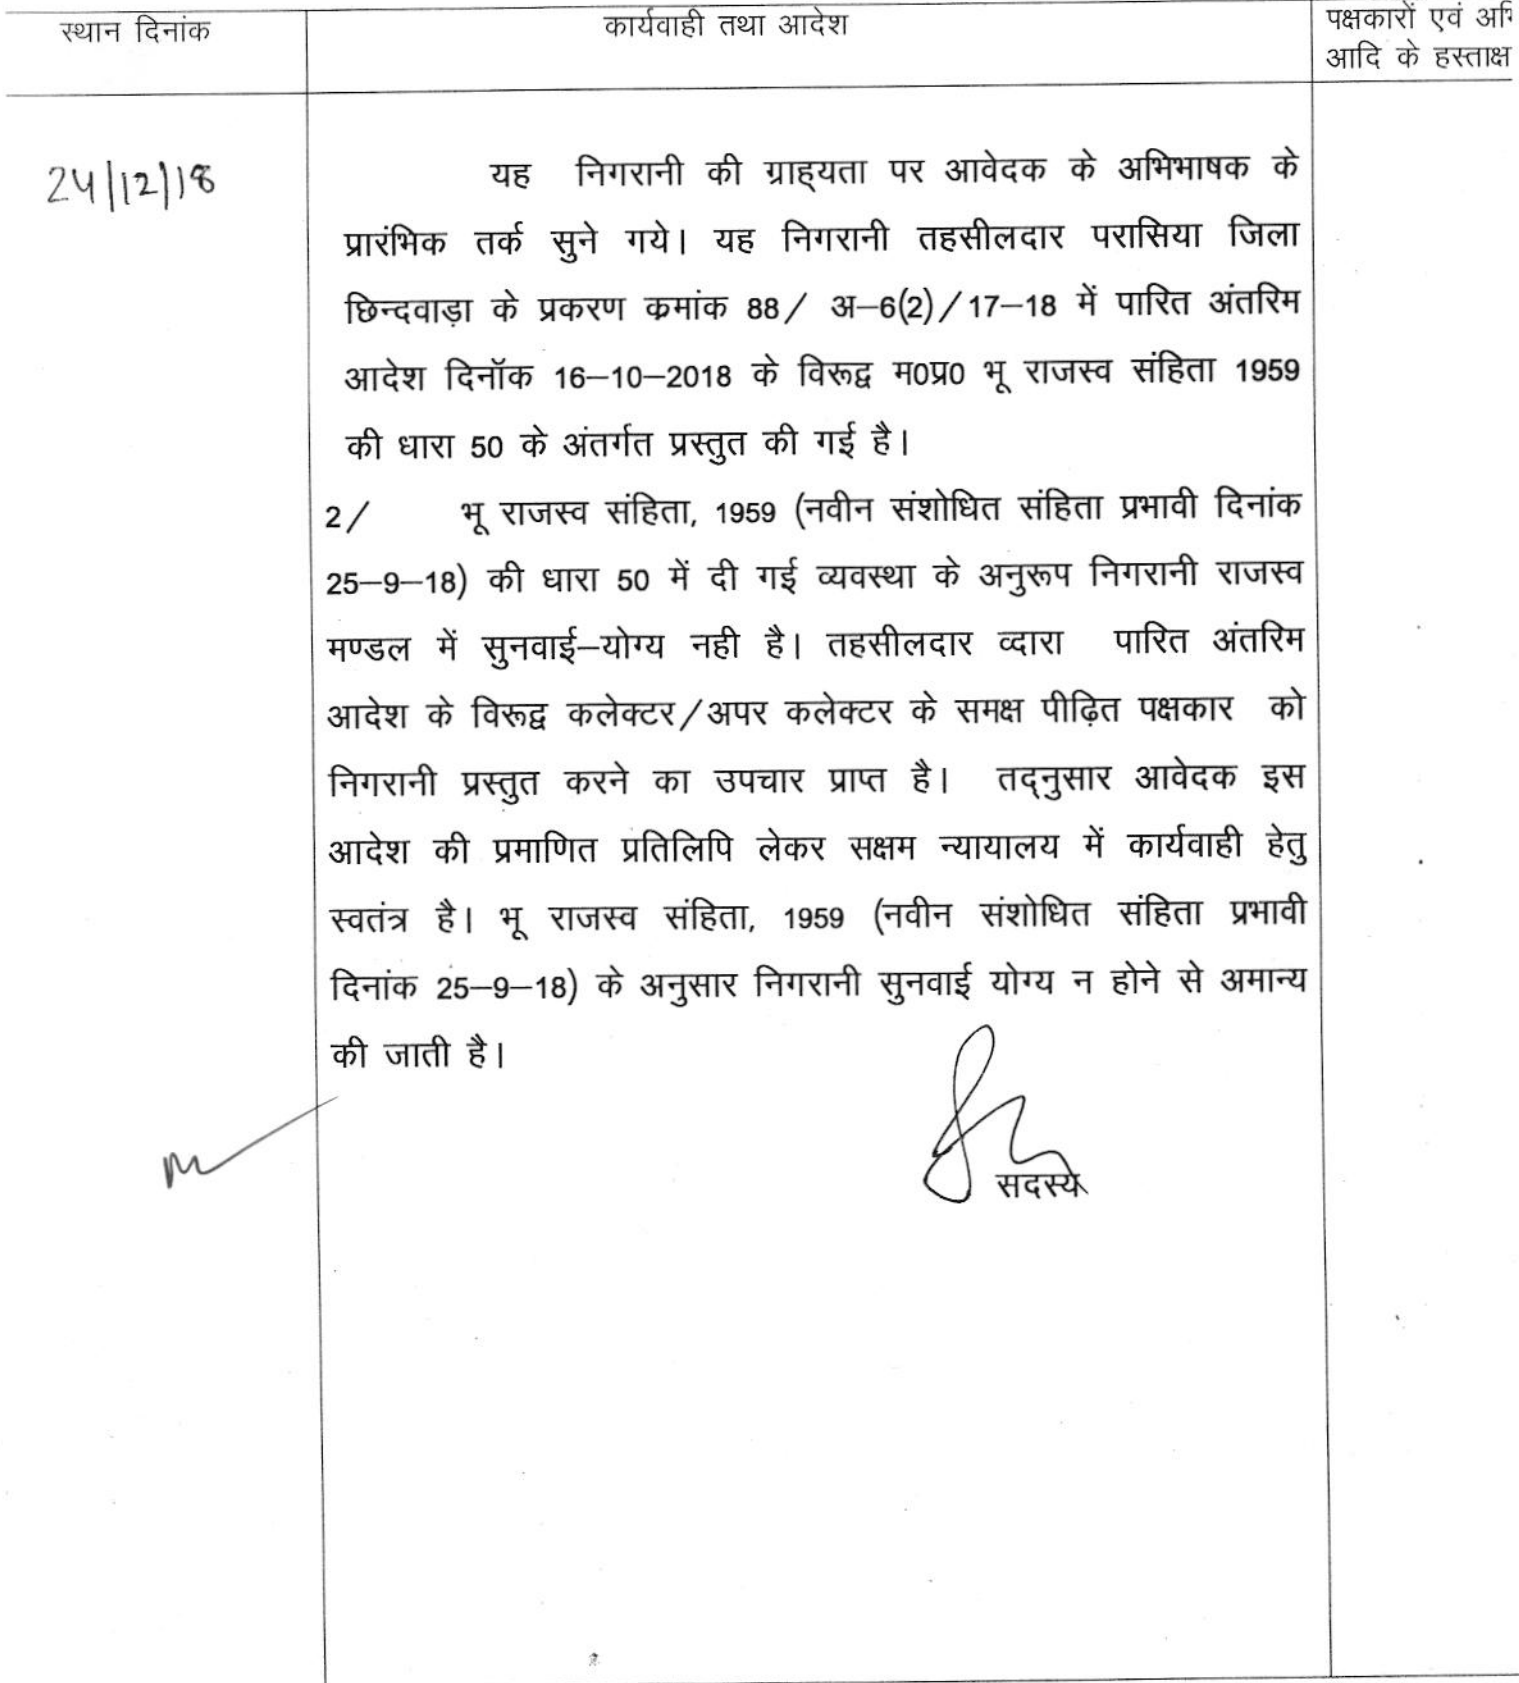 स्थान दिनांक
कार्यवाही तथा आदेश
पक्षकारों एवं
आदि के
24/12/18
यह निगरानी की ग्राह्यता पर आवेदक के अभिभाषक के
प्रारंभिक तर्क सुने गये। यह निगरानी तहसीलदार परासिया जिला
छिन्दवाड़ा के प्रकरण कमांक 88/ अ–6(2)/17–18 में पारित अंतरिम
आदेश दिनॉक 16–10–2018 के विरूद्व म0प्र0 भू राजस्व संहिता 1959
की धारा 50 के अंतर्गत प्रस्तुत की गई है।
2/ भू राजस्व संहिता, 1959 (नवीन संशोधित संहिता प्रभावी दिनांक
25–9–18) की धारा 50 में दी गई व्यवस्था के अनुरूप निगरानी राजस्व
मण्डल में सुनवाई–योग्य नही है। तहसीलदार व्दारा पारित अंतरिम
आदेश के विरूद्व कलेक्टर/अपर कलेक्टर के समक्ष पीढ़ित पक्षकार को
निगरानी प्रस्तुत करने का उपचार प्राप्त है। तद्नुसार आवेदक इस
आदेश की प्रमाणित प्रतिलिपि लेकर सक्षम न्यायालय में कार्यवाही हेतु
स्वतंत्र है। भू राजस्व संहिता, 1959 (नवीन संशोधित संहिता प्रभावी
दिनांक 25–9–18) के अनुसार निगरानी सुनवाई योग्य न होने से अमान्य
की जाती है।
सदस्य